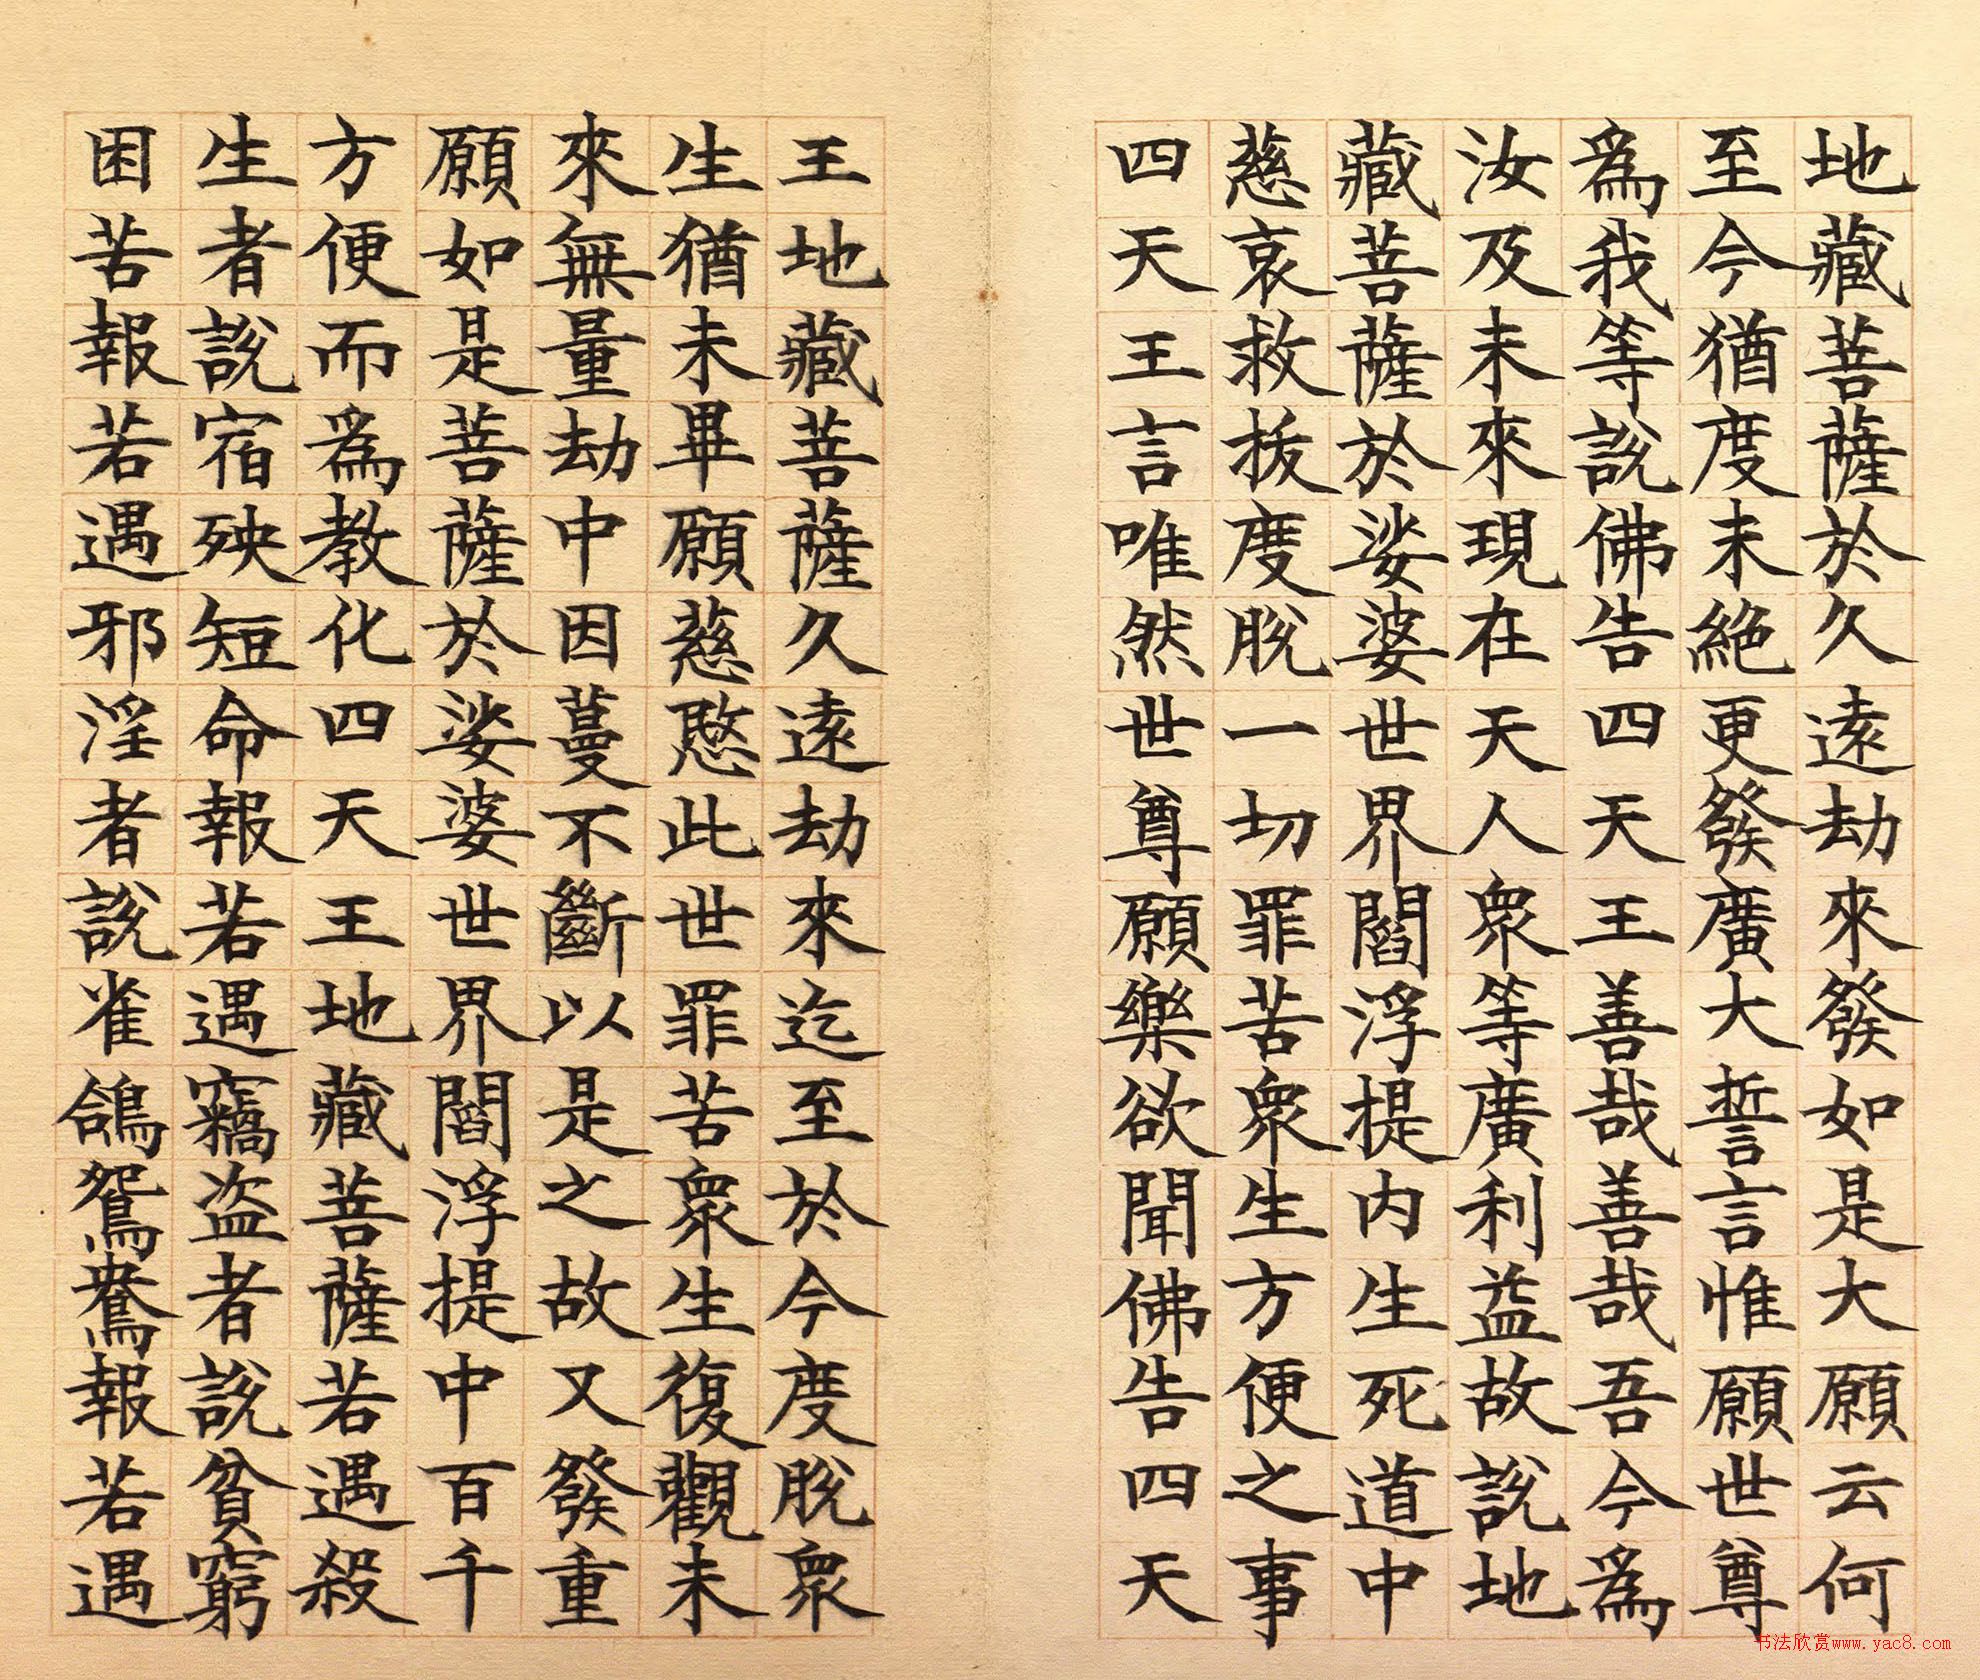 地藏菩薩於久遠劫來發如是大願云何
至今猶度未絕更發廣大誓言惟願世尊
為我等說佛告四天王善哉善哉吾今為
汝及未來現在天人眾等廣利益故說地
藏菩薩於娑婆世界閻浮提內生死道中
慈哀救拔度脫一切罪苦眾生方便之事
四天王言唯然世尊願樂欲聞佛告四天
王地藏菩薩久遠劫來迄至於今度脫眾
生猶未畢願慈愍此世罪苦眾生復觀未
來無量劫中因蔓不斷以是之故又發重
願如是菩薩於娑婆世界閻浮提中百千
方便而為教化四天王地藏菩薩若遇殺
生者說宿殃短命報若遇竊盜者說貧窮
困苦報若遇邪淫者說雀鴿鴛鴦報若遇
书法欣赏www.yac8.com